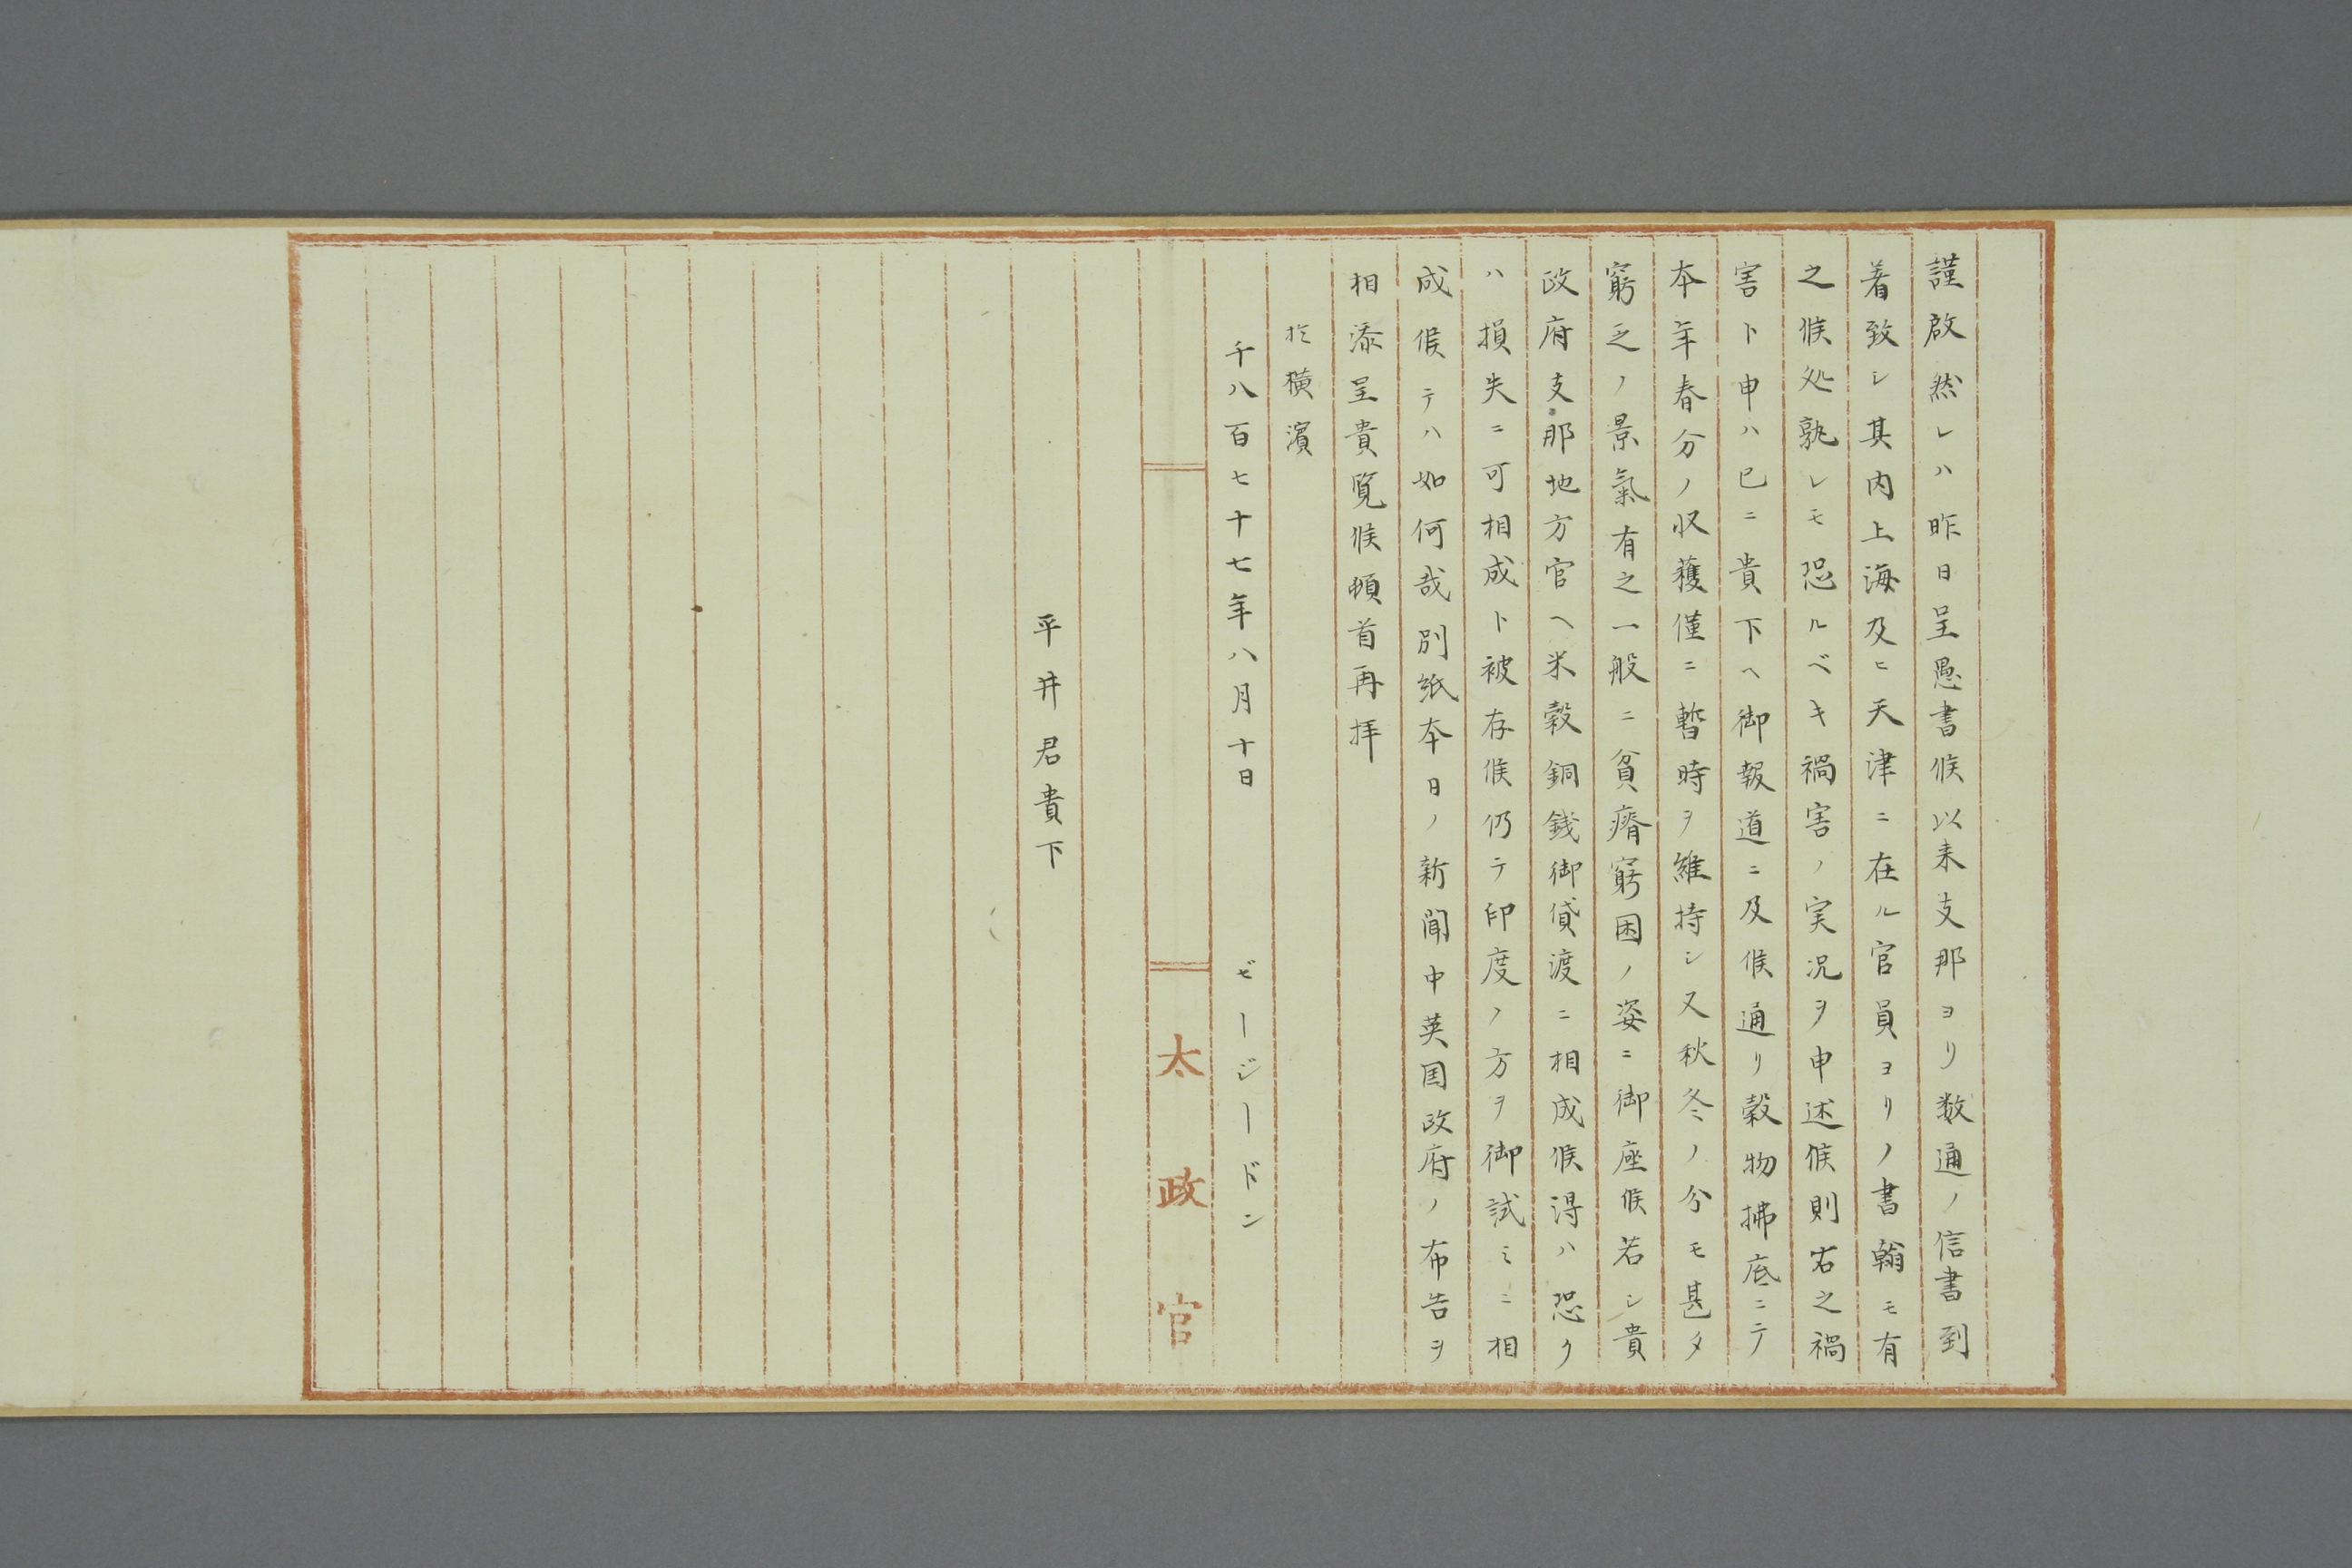 謹啟然レハ昨日呈愚書候以来支那ヨリ数通ノ信書到
着致シ其内上海及ヒ天津ニ在ル官員ヨリノ書翰モ有
之候処孰レモ恐ルベキ禍害ノ実况ヲ申述候則右之禍
害ト申ハ已ニ貴下ヘ御報道ニ及候通リ穀物拂底ニテ
本年春分ノ収穫僅ニ暫時ヲ維持シ又秋冬ノ分モ甚タ
窮乏ノ景氣有之一般ニ貧瘠窮困ノ姿ニ御座候若シ貴
政府支那地方官ヘ米穀銅銭御貸渡ニ相成候得ハ恐ク
ハ損失ニ可相成ト被存候仍テ印度ノ方ヲ御試ミニ相
成候テハ如何哉別紙本日ノ新聞中英国政府ノ布告ヲ
相添呈貴覧候頓首再拝
於横濱
千八百七十七年八月十日 ゼージードン
太政官
平井君貴下